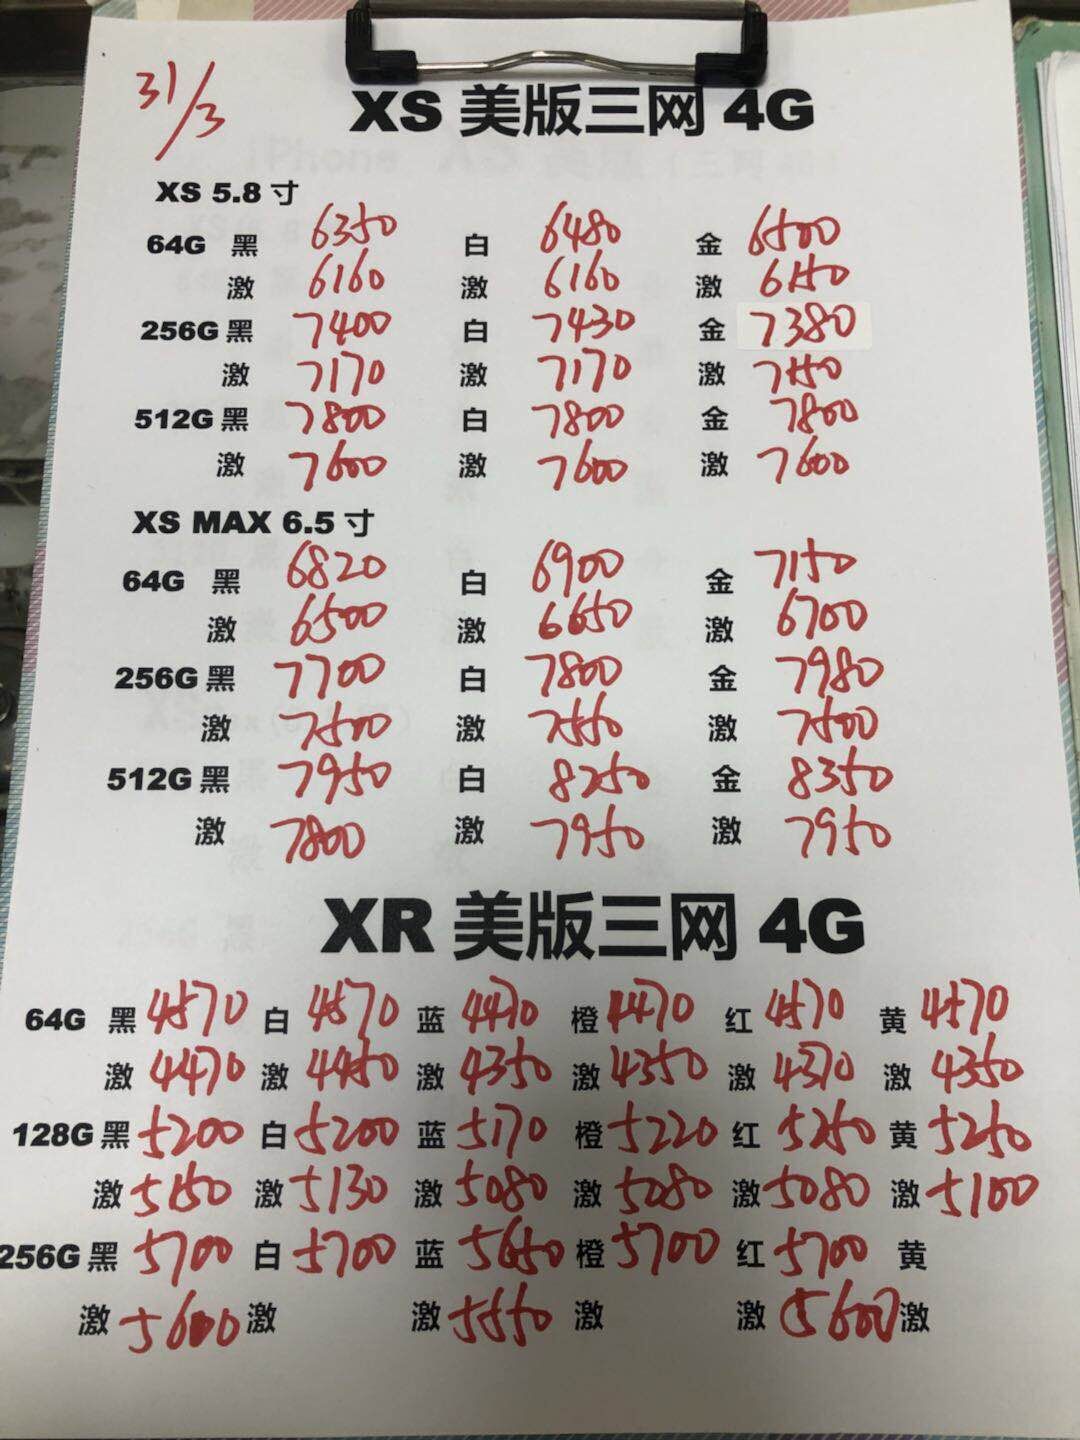 31/3
XS 美版三网 4G
XS 5.8 寸
64G 黑 6350 白 6480 金 6500
激 6160 激 6160 激 6150
256G 黑 7400 白 7430 金 7380
激 7170 激 7170 激 7150
512G 黑 7800 白 7800 金 7800
激 7600 激 7600 激 7600
XS MAX 6.5 寸
64G 黑 6820 白 6900 金 7150
激 6500 激 6650 激 6700
256G 黑 7700 白 7800 金 7980
激 7500 激 7550 激 7500
512G 黑 7950 白 8250 金 8350
激 7800 激 7950 激 7950
XR 美版三网 4G
64G 黑 4570 白 4570 蓝 4470 橙 4470 红 4570 黄 4570
激 4470 激 4450 激 4350 激 4350 激 4370 激 4350
128G 黑 5200 白 5200 蓝 5170 橙 5220 红 5250 黄 5250
激 5150 激 5130 激 5080 激 5080 激 5080 激 5100
256G 黑 5700 白 5700 蓝 5650 橙 5700 红 5700 黄
激 5600 激 激 5550 激 激 5600 激